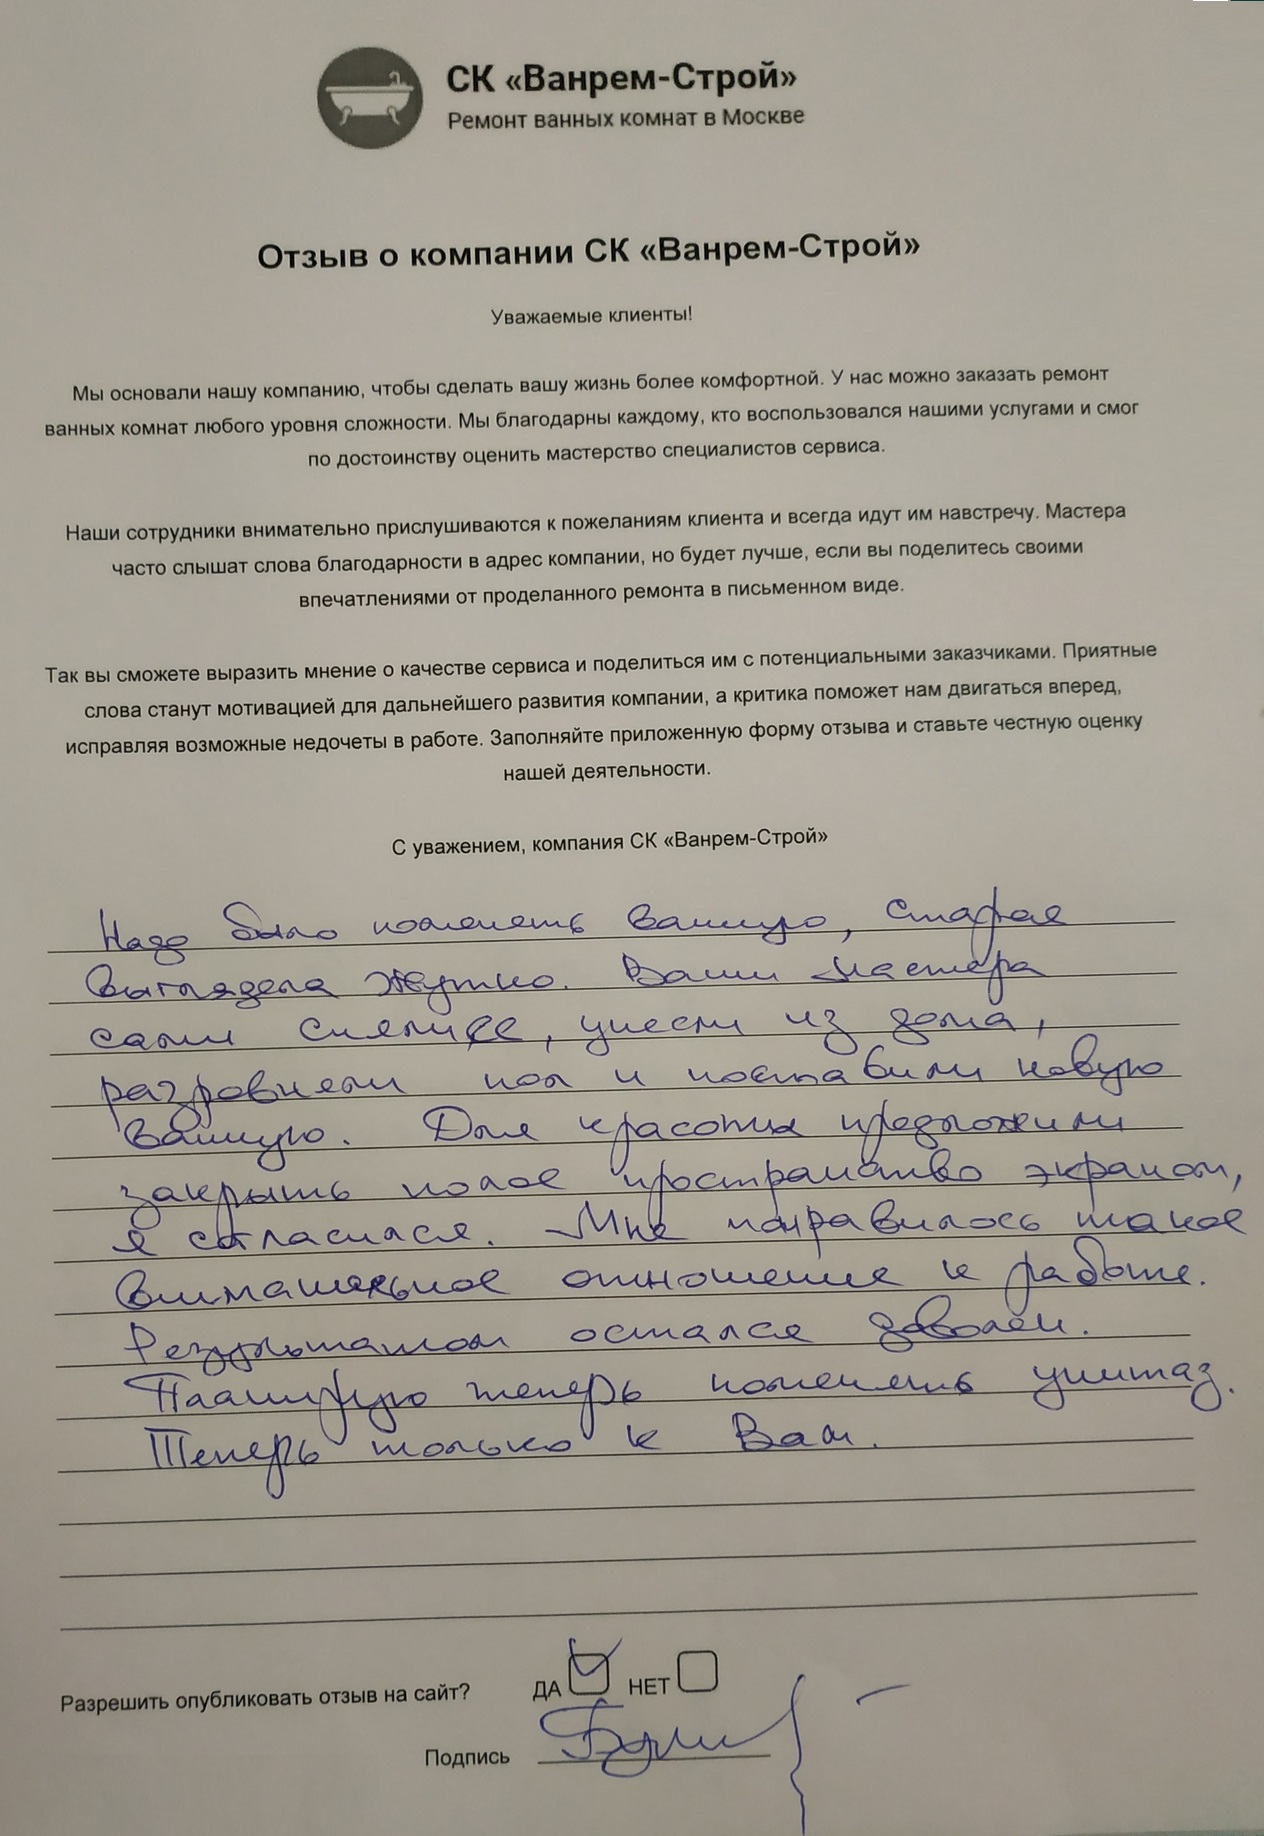 СК «Ванрем-Строй»
Ремонт ванных комнат в Москве
Отзыв о компании СК «Ванрем-Строй»
Уважаемые клиенты!
Мы основали нашу компанию, чтобы сделать вашу жизнь более комфортной. У нас можно заказать ремонт
ванных комнат любого уровня сложности. Мы благодарны каждому, кто воспользовался нашими услугами и смог
по достоинству оценить мастерство специалистов сервиса.
Наши сотрудники внимательно прислушиваются к пожеланиям клиента и всегда идут им навстречу. Мастера
часто слышат слова благодарности в адрес компании, но будет лучше, если вы поделитесь своими
впечатлениями от проделанного ремонта в письменном виде.
Так вы сможете выразить мнение о качестве сервиса и поделиться им с потенциальными заказчиками. Приятные
слова станут мотивацией для дальнейшего развития компании, а критика поможет нам двигаться вперед,
исправляя возможные недочеты в работе. Заполняйте приложенную форму отзыва и ставьте честную оценку
нашей деятельности.
С уважением, компания СК «Ванрем-Строй»
Надо было поменять ванную, старая
выглядела жутко. Ваши мастера
сами сняли ее, унесли из дома,
разровняли пол и поставили новую
ванную. Для красоты предложили
закрыть полое пространство экраном,
я согласился. Мне понравилось такое
внимательное отношение к работе.
Результатом остался доволен.
Планирую теперь поменять унитаз.
Теперь только к Вам.
Разрешить опубликовать отзыв на сайт? ДА НЕТ
Подпись